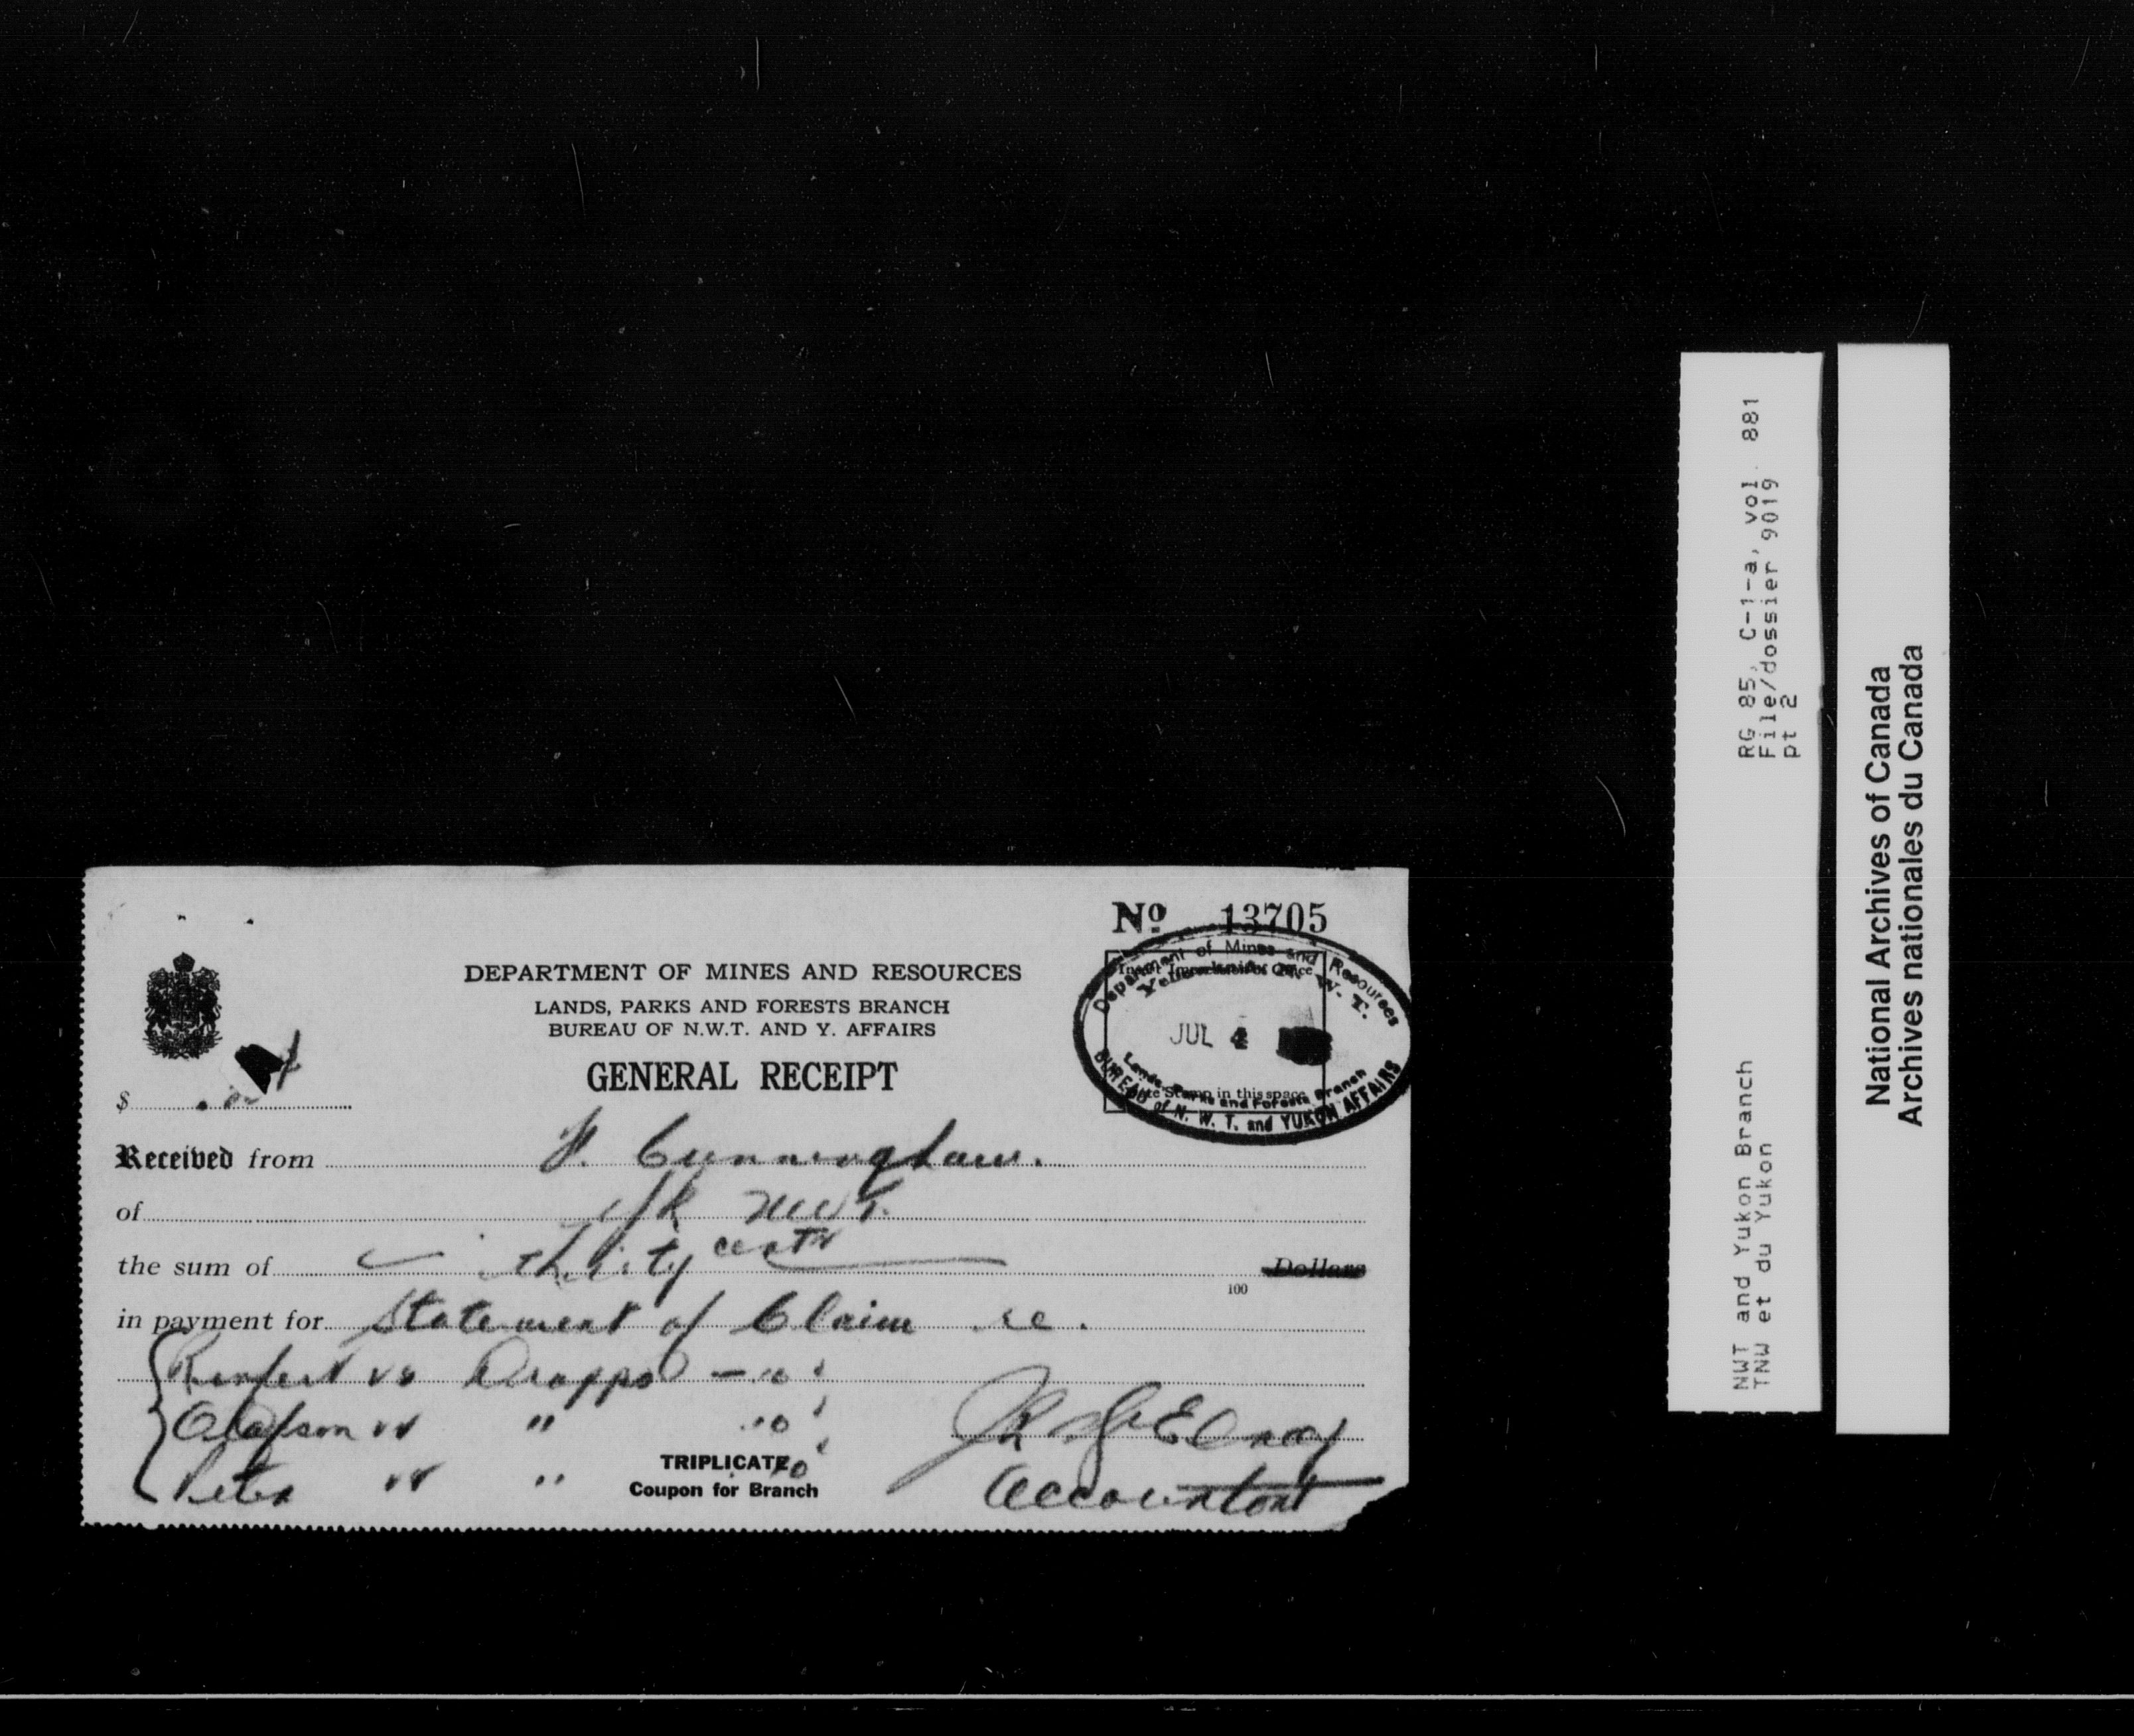 Nº 13705
DEPARTMENT OF MINES AND RESOURCES
LANDS, PARKS AND FORESTS BRANCH
BUREAU OF N.W.T. AND Y. AFFAIRS
GENERAL RECEIPT
Department of Mines and Resources
Yellowknife N. W. T.
JUL 4
Lands, Parks and Forests Branch
BUREAU of N. W. T. and YUKON AFFAIRS
Stamp in this space
$
Received from Cunningham.
of Y/K N.W.T.
the sum of thirty cents Dollars
100
in payment for Statement of Claim re.
vs
Olafson vs "
Peter vs "
TRIPLICATE
Coupon for Branch
Accountant
RG 85, C-1-a, vol. 881
File/dossier 9019
pt 2
NWT and Yukon Branch
TNW et du Yukon
National Archives of Canada
Archives nationales du Canada